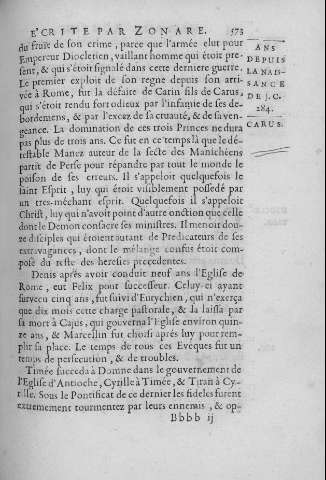 E'CRITE PAR ZONARE. 573
du fruit de son crime, parce que l'armée élut pour
Empereur Diocletien, vaillant homme qui étoit pre-
sent, & qui s'étoit signalé dans cette derniere guerre.
Le premier exploit de son regne depuis son arri-
vée à Rome, fut la défaite de Carin fils de Carus,
qui s'étoit rendu fort odieux par l'infamie de ses dé-
bordemens, & par l'excez de sa cruauté, & de sa ven-
geance. La domination de ces trois Princes ne dura
pas plus de trois ans. Ce fut en ce temps là que le dé-
testable Manez auteur de la secte des Manichéens
partit de Perse pour répandre par tout le monde le
poison de ses erreurs. Il s'appeloit quelquefois le
saint Esprit, luy qui étoit visiblement possedé par
un tres-méchant esprit. Quelquefois il s'appeloit
Christ, luy qui n'avoit point d'autre onction que celle
dont le Demon consacre ses ministres. Il menoit dou-
ze disciples qui étoient autant de Predicateurs de ses
extravagances, dont le mélange confus étoit com-
posé du reste des heresies precedentes.
Denis aprés avoir conduit neuf ans l'Eglise de
Rome, eut Felix pour successeur. Celuy-ci ayant
survecu cinq ans, fut suivi d'Eutychien, qui n'exerça
que dix mois cette charge pastorale, & la laissa par
sa mort à Cajus, qui gouverna l'Eglise environ quin-
ze ans, & Marcellin fut choisi aprés luy pour rem-
plir sa place. Le temps de tous ces Evêques fut un
temps de persecution, & de troubles.
Timée succeda à Domne dans le gouvernement de
l'Eglise d'Antioche, Cyrille à Timée, & Tiran à Cy-
rille. Sous le Pontificat de ce dernier les fideles furent
extrememment tourmentez par leurs ennemis, & op-
Bbbb ij
ANS
DEPUIS
LA NAIS-
SANCE
DE J. C.
284.
CARUS.